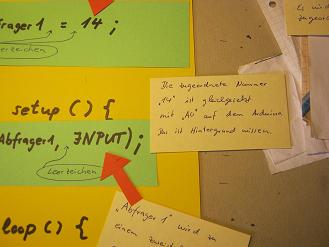 frager1 = 14;
Leerzeichen
setup () {
Abfrager1, INPUT);
Leerzeichen
loop () {
Die zugeordnete Nummer
"14" ist gleichgesetzt
mit "A0" auf dem Arduino.
Das ist Hintergrundwissen.
"Abfrager 1" wird zu
einem
Es wird